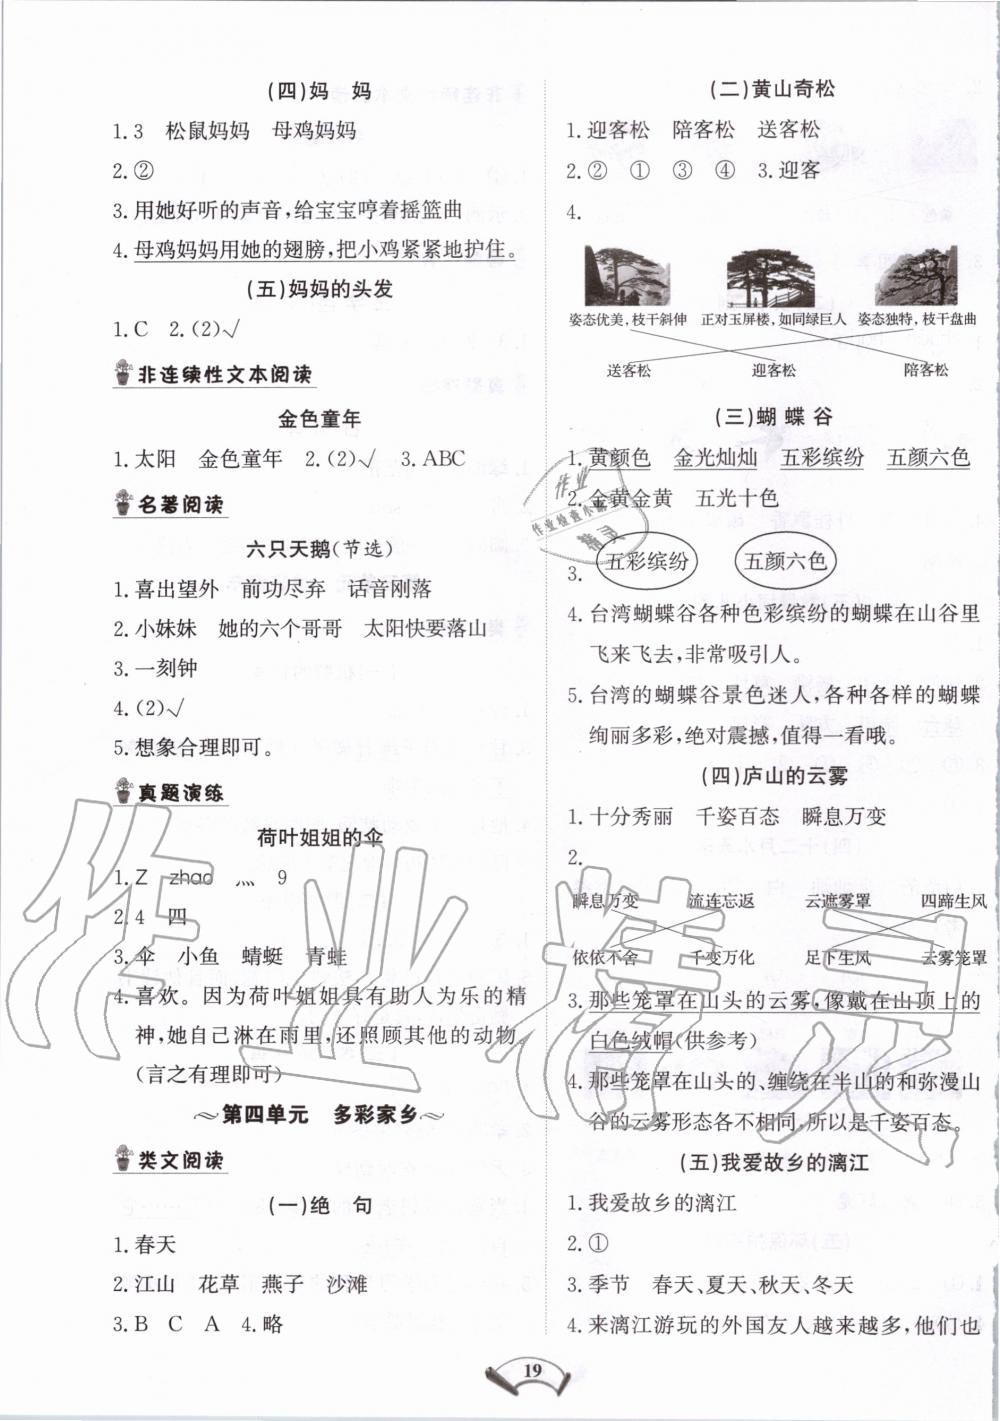 (四)妈　妈
1.3　松鼠妈妈　母鸡妈妈
2.②
3.用她好听的声音,给宝宝哼着摇篮曲
4.母鸡妈妈用她的翅膀,把小鸡紧紧地护住。
(五)妈妈的头发
1.C　2.(2)√
非连续性文本阅读
金色童年
1.太阳　金色童年　2.(2)√　3.ABC
名著阅读
六只天鹅(节选)
1.喜出望外　前功尽弃　话音刚落
2.小妹妹　她的六个哥哥　太阳快要落山
3.一刻钟
4.(2)√
5.想象合理即可。
真题演练
荷叶姐姐的伞
1.Z　zhao　灬　9
2.4　四
3.伞　小鱼　蜻蜓　青蛙
4.喜欢。因为荷叶姐姐具有助人为乐的精
神,她自己淋在雨里,还照顾其他的动物。
(言之有理即可)
～第四单元　多彩家乡～
类文阅读
(一)绝　句
1.春天
2.江山　花草　燕子　沙滩
3.B　C　A　4.略
(二)黄山奇松
1.迎客松　陪客松　送客松
2.②　①　③　④　3.迎客
4.
姿态优美,枝干斜伸　正对玉屏楼,如同绿巨人　姿态独特,枝干盘曲
送客松　迎客松　陪客松
(三)蝴 蝶 谷
1.黄颜色　金光灿灿　五彩缤纷　五颜六色
2.金黄金黄　五光十色
3.五彩缤纷　五颜六色
4.台湾蝴蝶谷各种色彩缤纷的蝴蝶在山谷里
飞来飞去,非常吸引人。
5.台湾的蝴蝶谷景色迷人,各种各样的蝴蝶
绚丽多彩,绝对震撼,值得一看哦。
(四)庐山的云雾
1.十分秀丽　千姿百态　瞬息万变
2.
瞬息万变　流连忘返　云遮雾罩　四蹄生风
依依不舍　千变万化　足下生风　云雾笼罩
3.那些笼罩在山头的云雾,像戴在山顶上的
白色绒帽(供参考)
4.那些笼罩在山头的、缠绕在半山的和弥漫山
谷的云雾形态各不相同,所以是千姿百态。
(五)我爱故乡的漓江
1.我爱故乡的漓江
2.①
3.季节　春天、夏天、秋天、冬天
4.来漓江游玩的外国友人越来越多,他们也
19
作业精灵